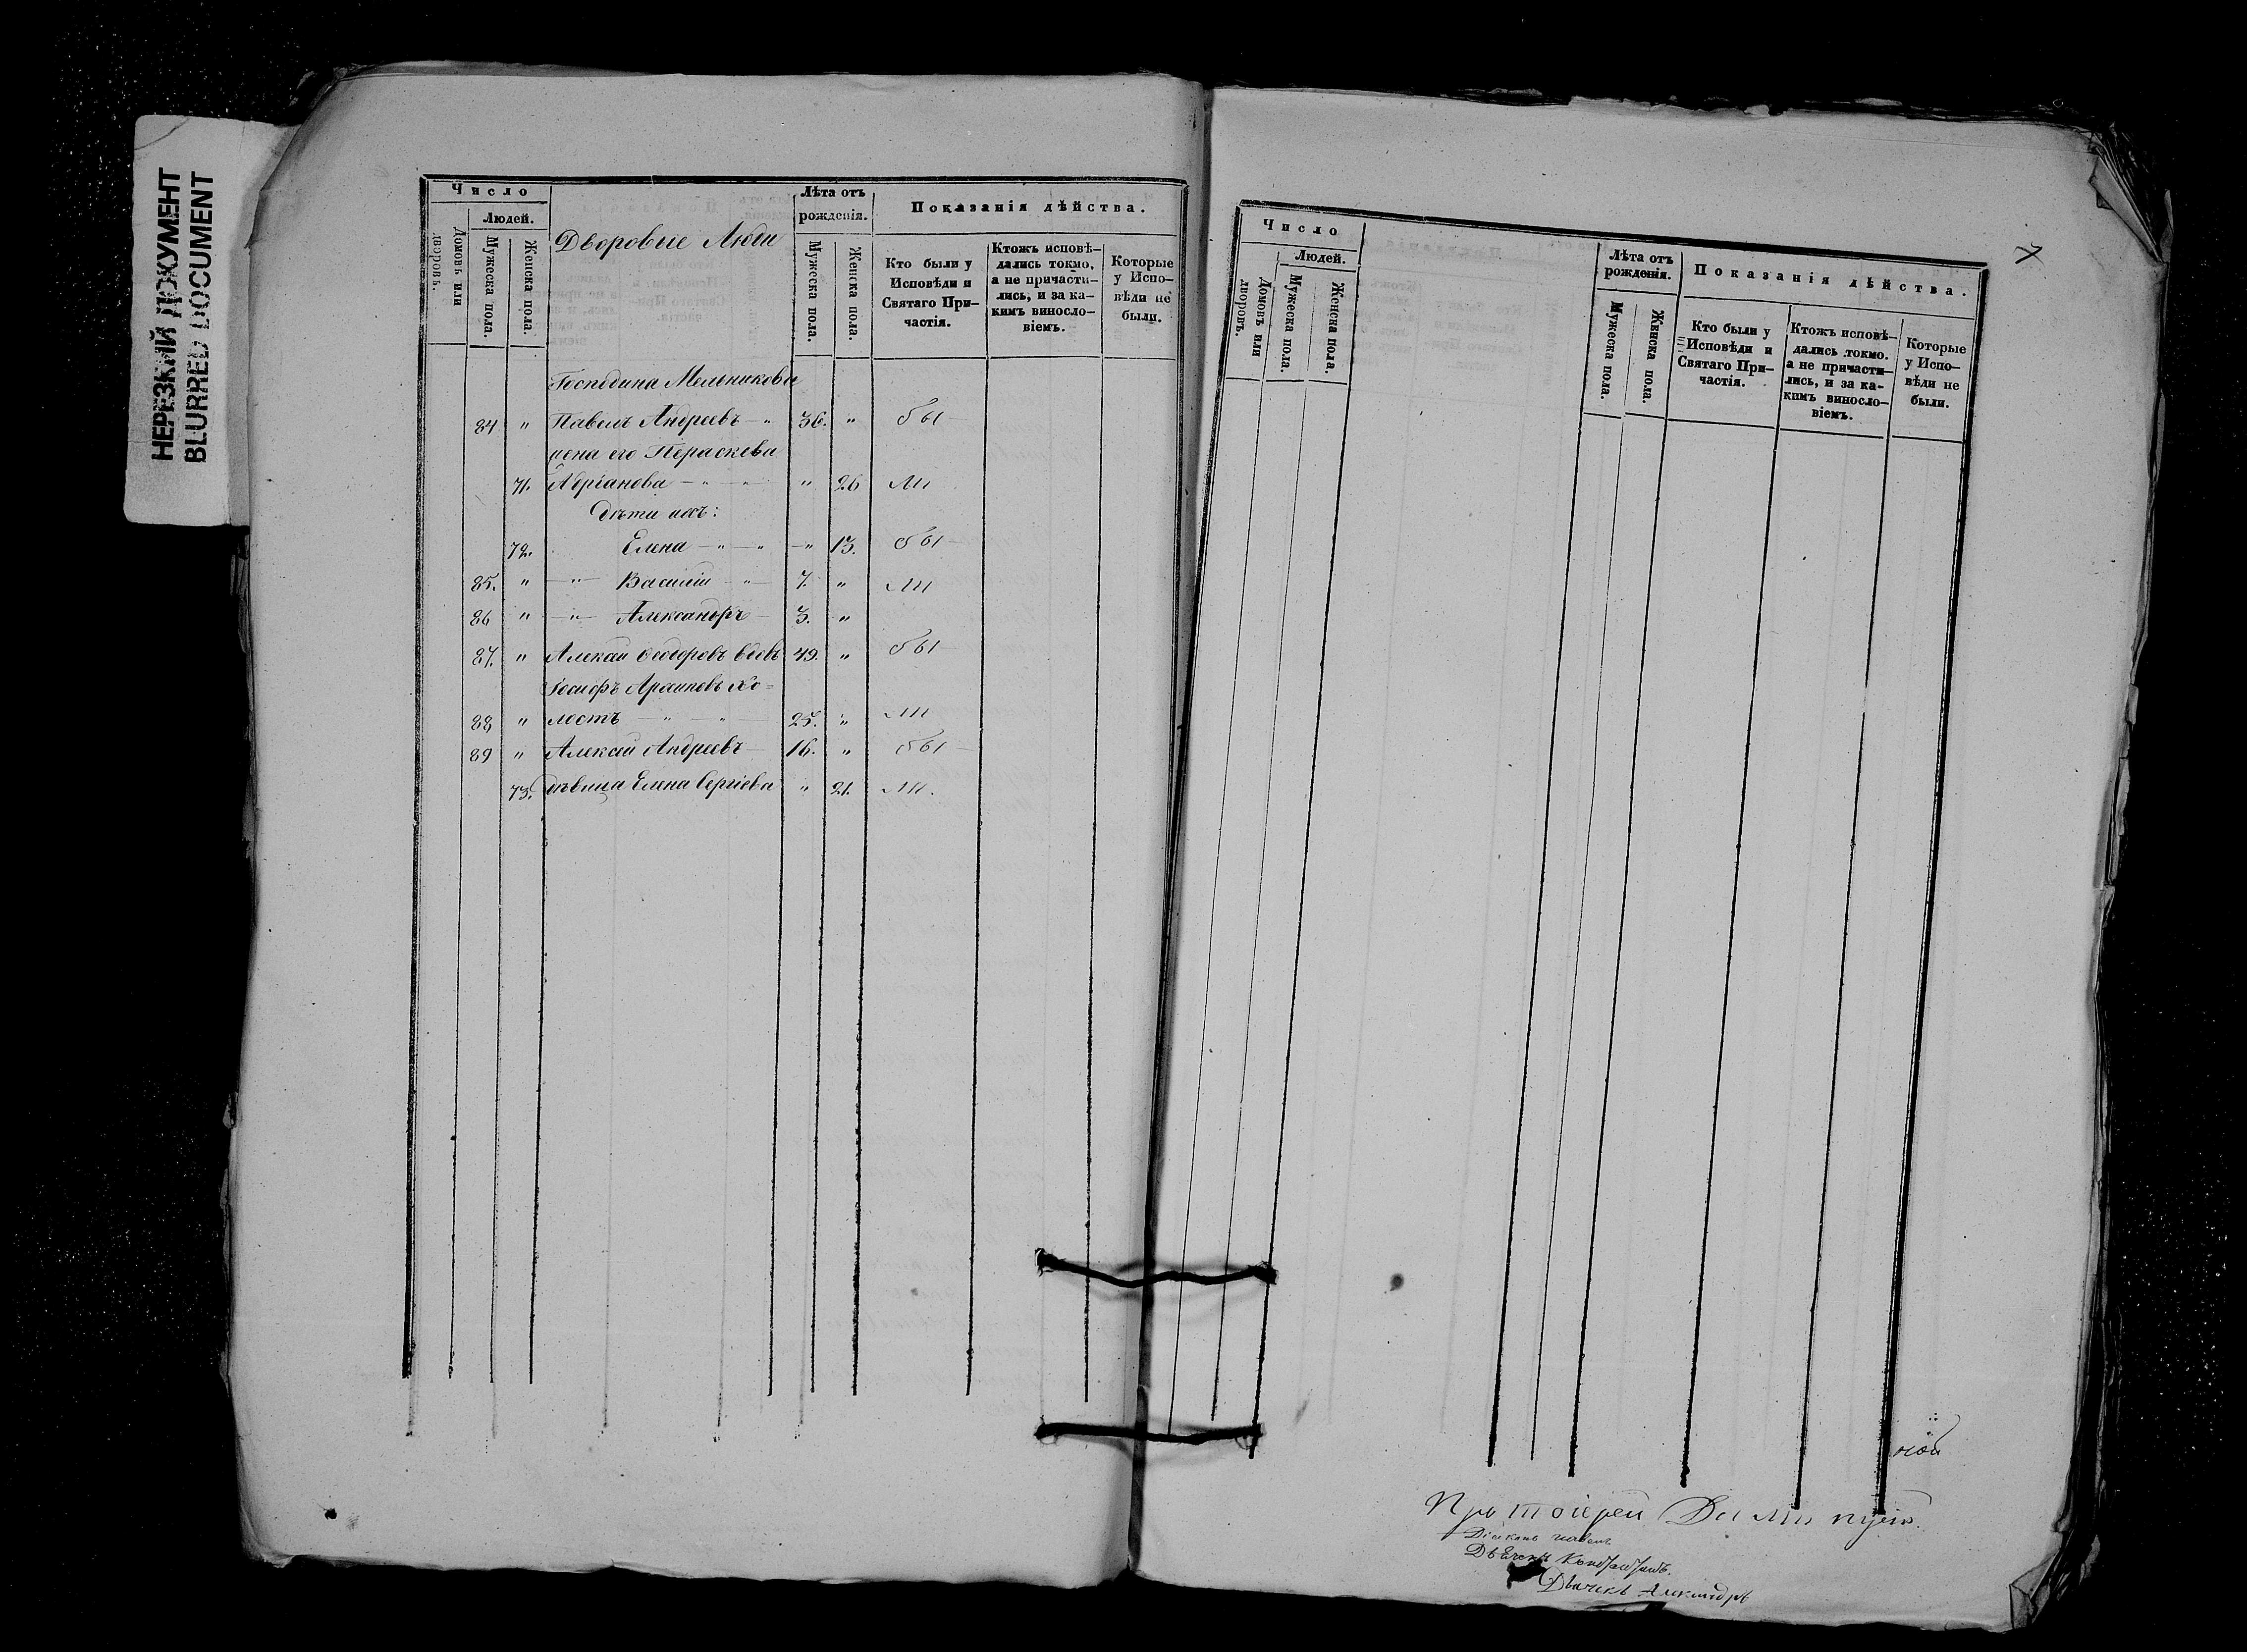 НЕРЕЗКИЙ ДОКУМЕНТ
BLURRED DOCUMENT
Число
Людей.
Домовъ или дворовъ.
Мужеска пола.
Женска пола.
Дворовые Люди
Лѣта отъ рожденія.
Мужеска пола.
Женска пола.
Показанія дѣйства.
Кто были у Исповѣди и Святаго При-частія.
Ктожъ исповѣ-дались токмо, а не причасти-лись, и за ка-кимъ винсло-віемъ.
Которые у Испо-вѣди не были.
Господина Мельникова
84 " Павелъ Андреевъ — " 36. " бы —
жена его Параскева
71. Адріанова — " — " — " 26 ли
дѣти ихъ:
72. Елена — " — " — " 13. бы —
85. " — " — Василій — " — 7. " ли
86 " — " — Александръ — 3. "
87. " Алексѣй Ѳеодоровъ вдовъ 49. " бы —
Іосифъ Архиповъ хо=
88 " лостъ — " — " 25. " ли
89 " Алексѣй Андреевъ — 16. " бы —
73. дѣвица Елена Сергіева " 21. ли.
7
Число
Людей.
Домовъ или дворовъ.
Мужеска пола.
Женска пола.
Лѣта отъ рожденія.
Мужеска пола.
Женска пола.
Показанія дѣйства.
Кто были у Исповѣди и Святаго При-частія.
Ктожъ исповѣ-дались токмо. а не причасти-лись, и за ка-кимъ винсло-віемъ.
Которые у Испо-вѣди не были.
Протоіерей
Діаконъ Павелъ
Дьячекъ
Дьячекъ Александръ